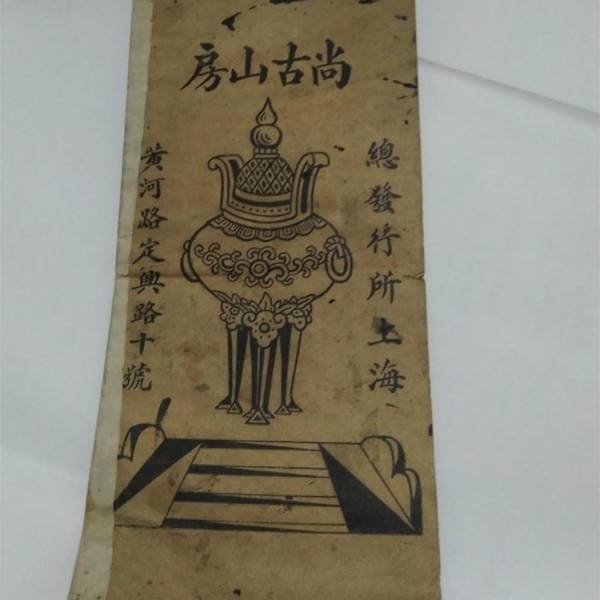 尚古山房
總發行所上海
黃河路定興路十號